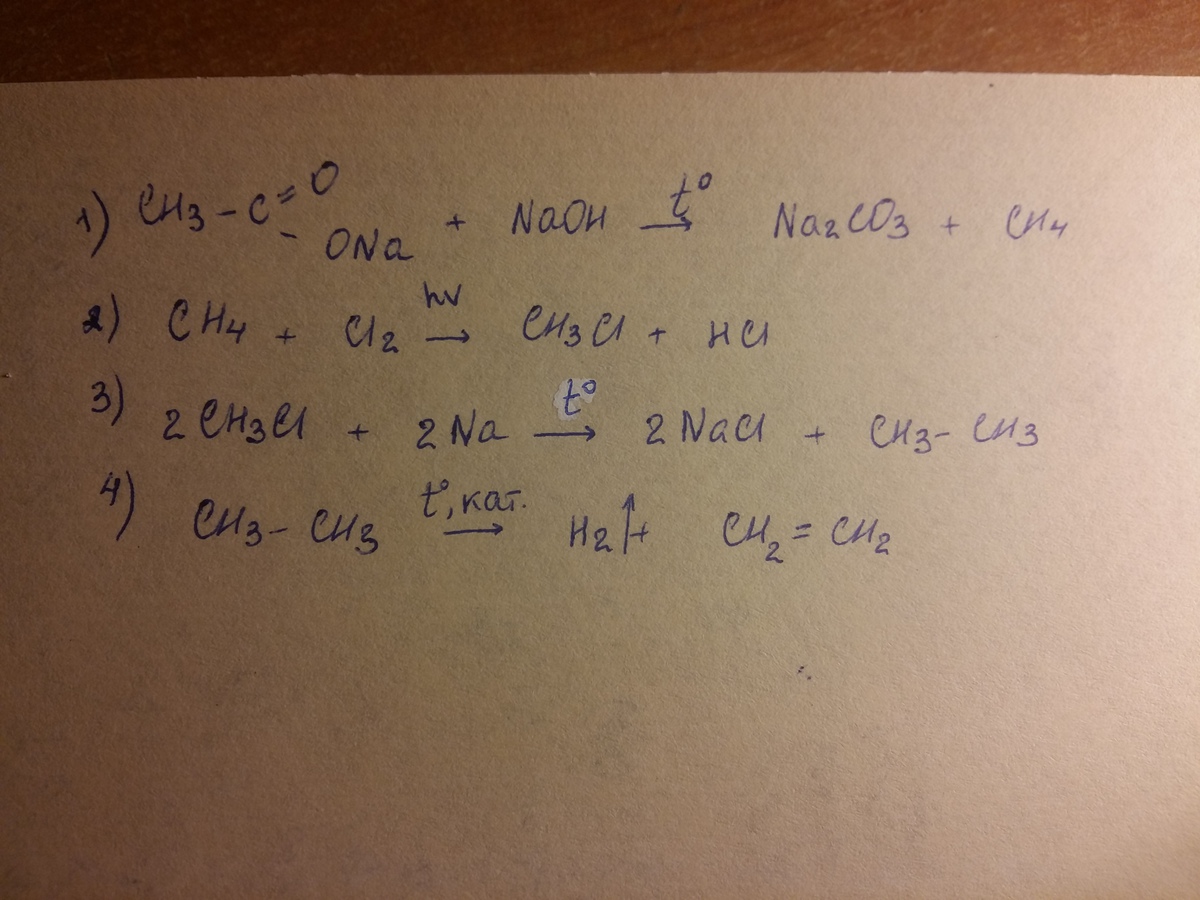 1) CH3 - C = O - ONa + NaOH t° → Na2CO3 + CH4
2) CH4 + Cl2 hν → CH3Cl + HCl
3) 2CH3Cl + 2Na t° → 2NaCl + CH3 - CH3
4) CH3 - CH3 t°, кат. → H2↑ + CH2 = CH2